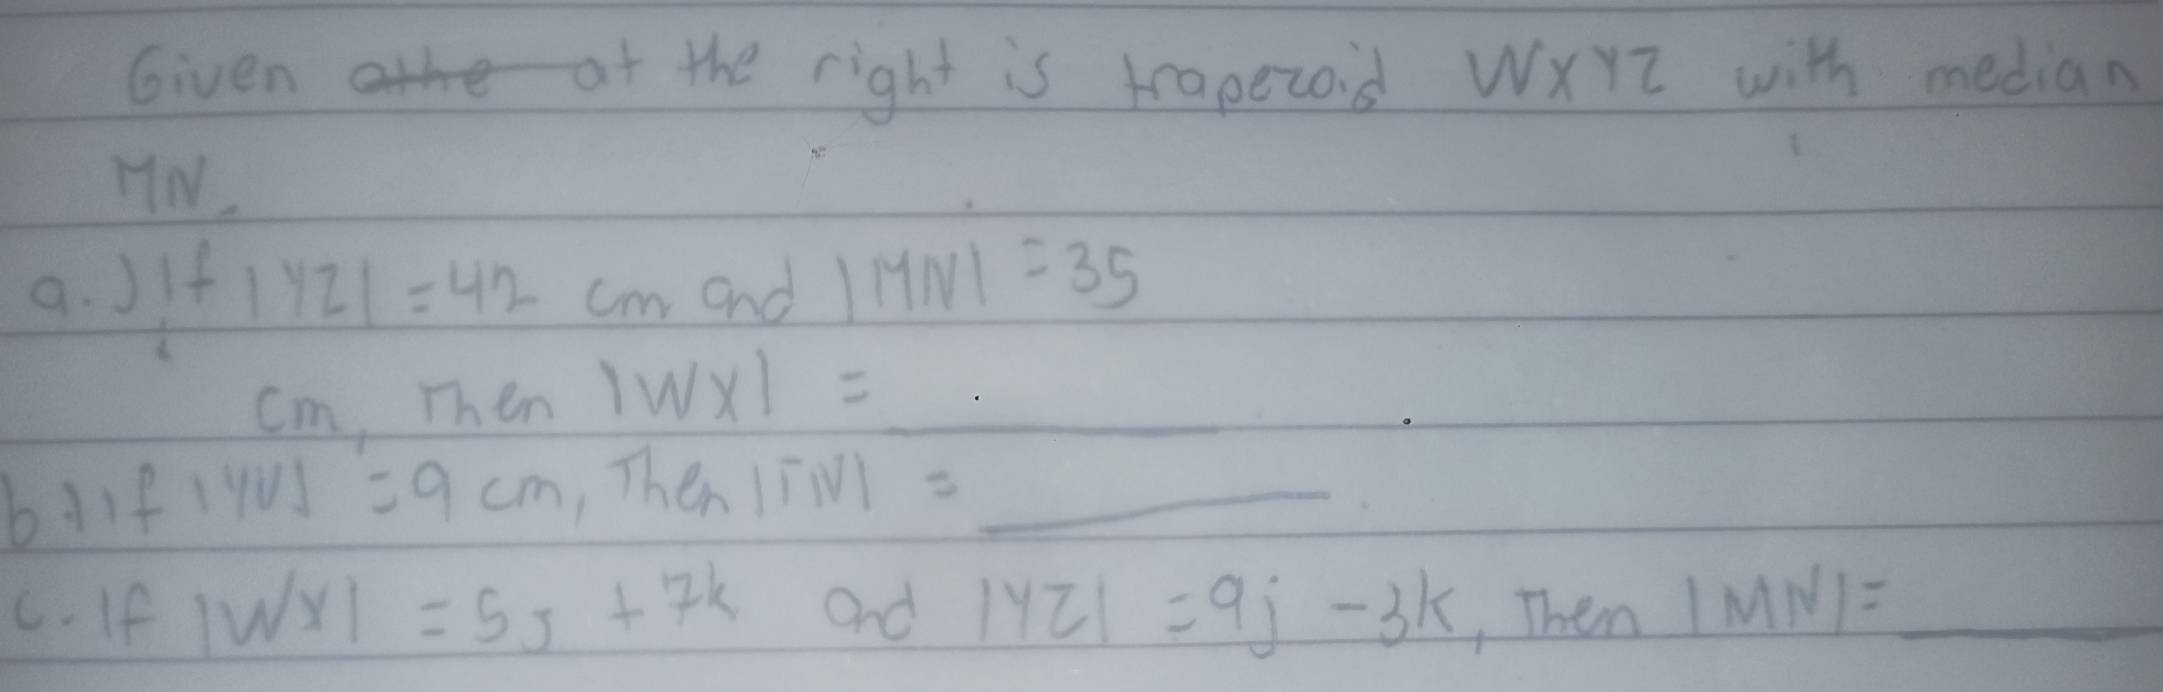 Given athe at the right is trapezoid WXYZ with median
MN.
a.) If |YZ| = 42 cm and |MN| = 35
cm, Then |WX| =
b.) If |YU| = 9 cm, Then |TN| =
c. If |WX| = 5j + 7k and |YZ| = 9j - 3k, Then |MN| =